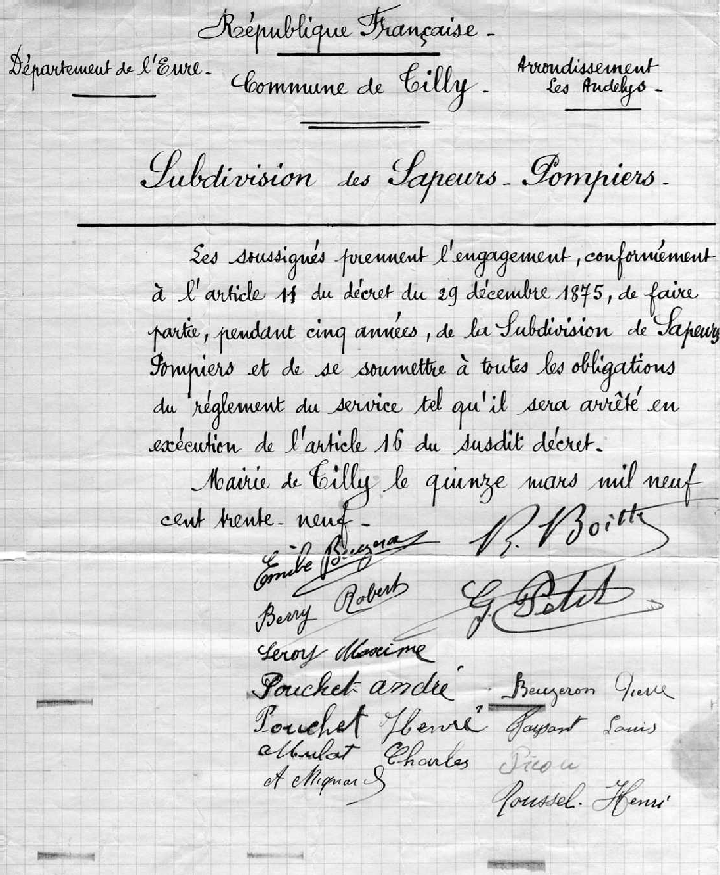 République Française -
Département de l'Eure -
Commune de Tilly -
Arrondissement
Les Andelys -
Subdivision des Sapeurs - Pompiers -
Les soussignés prennent l'engagement, conformément
à l'article 11 du décret du 29 décembre 1875, de faire
partie, pendant cinq années, de la Subdivision de Sapeurs
Pompiers et de se soumettre à toutes les obligations
du réglement du service tel qu'il sera arrêté en
exécution de l'article 16 du susdit décret -
Mairie de Tilly le quinze mars mil neuf
cent trente - neuf -
Emile
R.
Berry Robert
G. Petit
Leroy Maxime
Pouchet andré
Beuzeron Pierre
Pouchet Henri
Paysant Louis
Mulat Charles
A Mignard
Roussel Henri